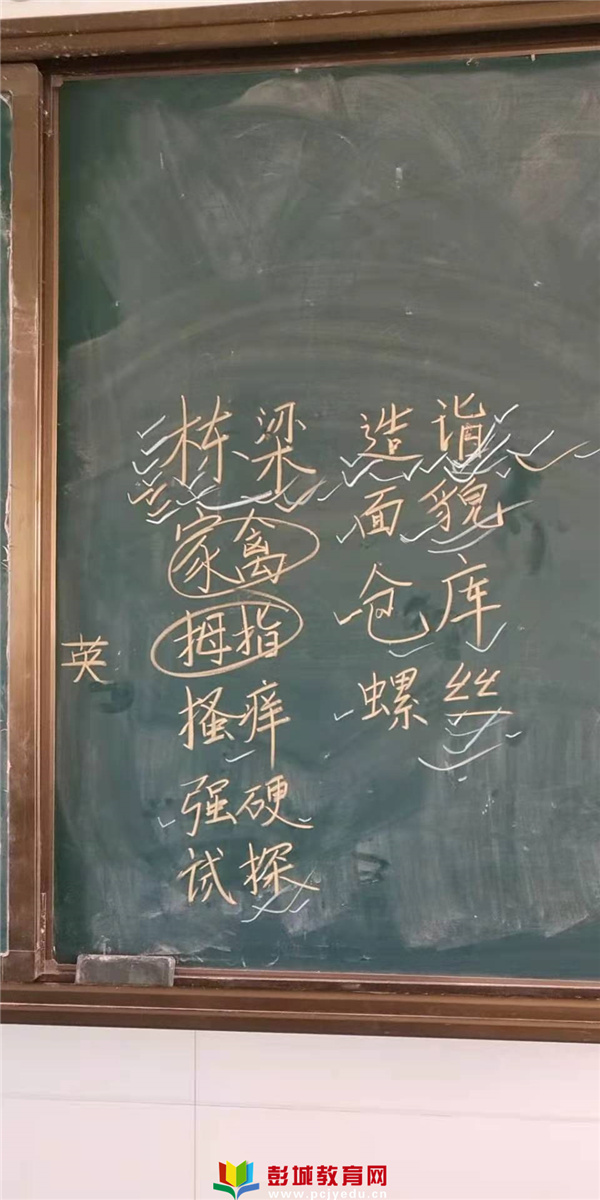 栋梁 造诣
家禽 面貌
拇指 仓库
英
搔痒 螺丝
强硬
试探
彭城教育网
www.pcjyedu.cn